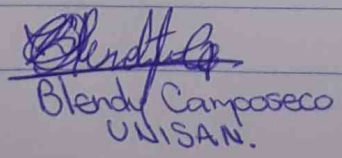 Blendy Camposeco
UNISAN.